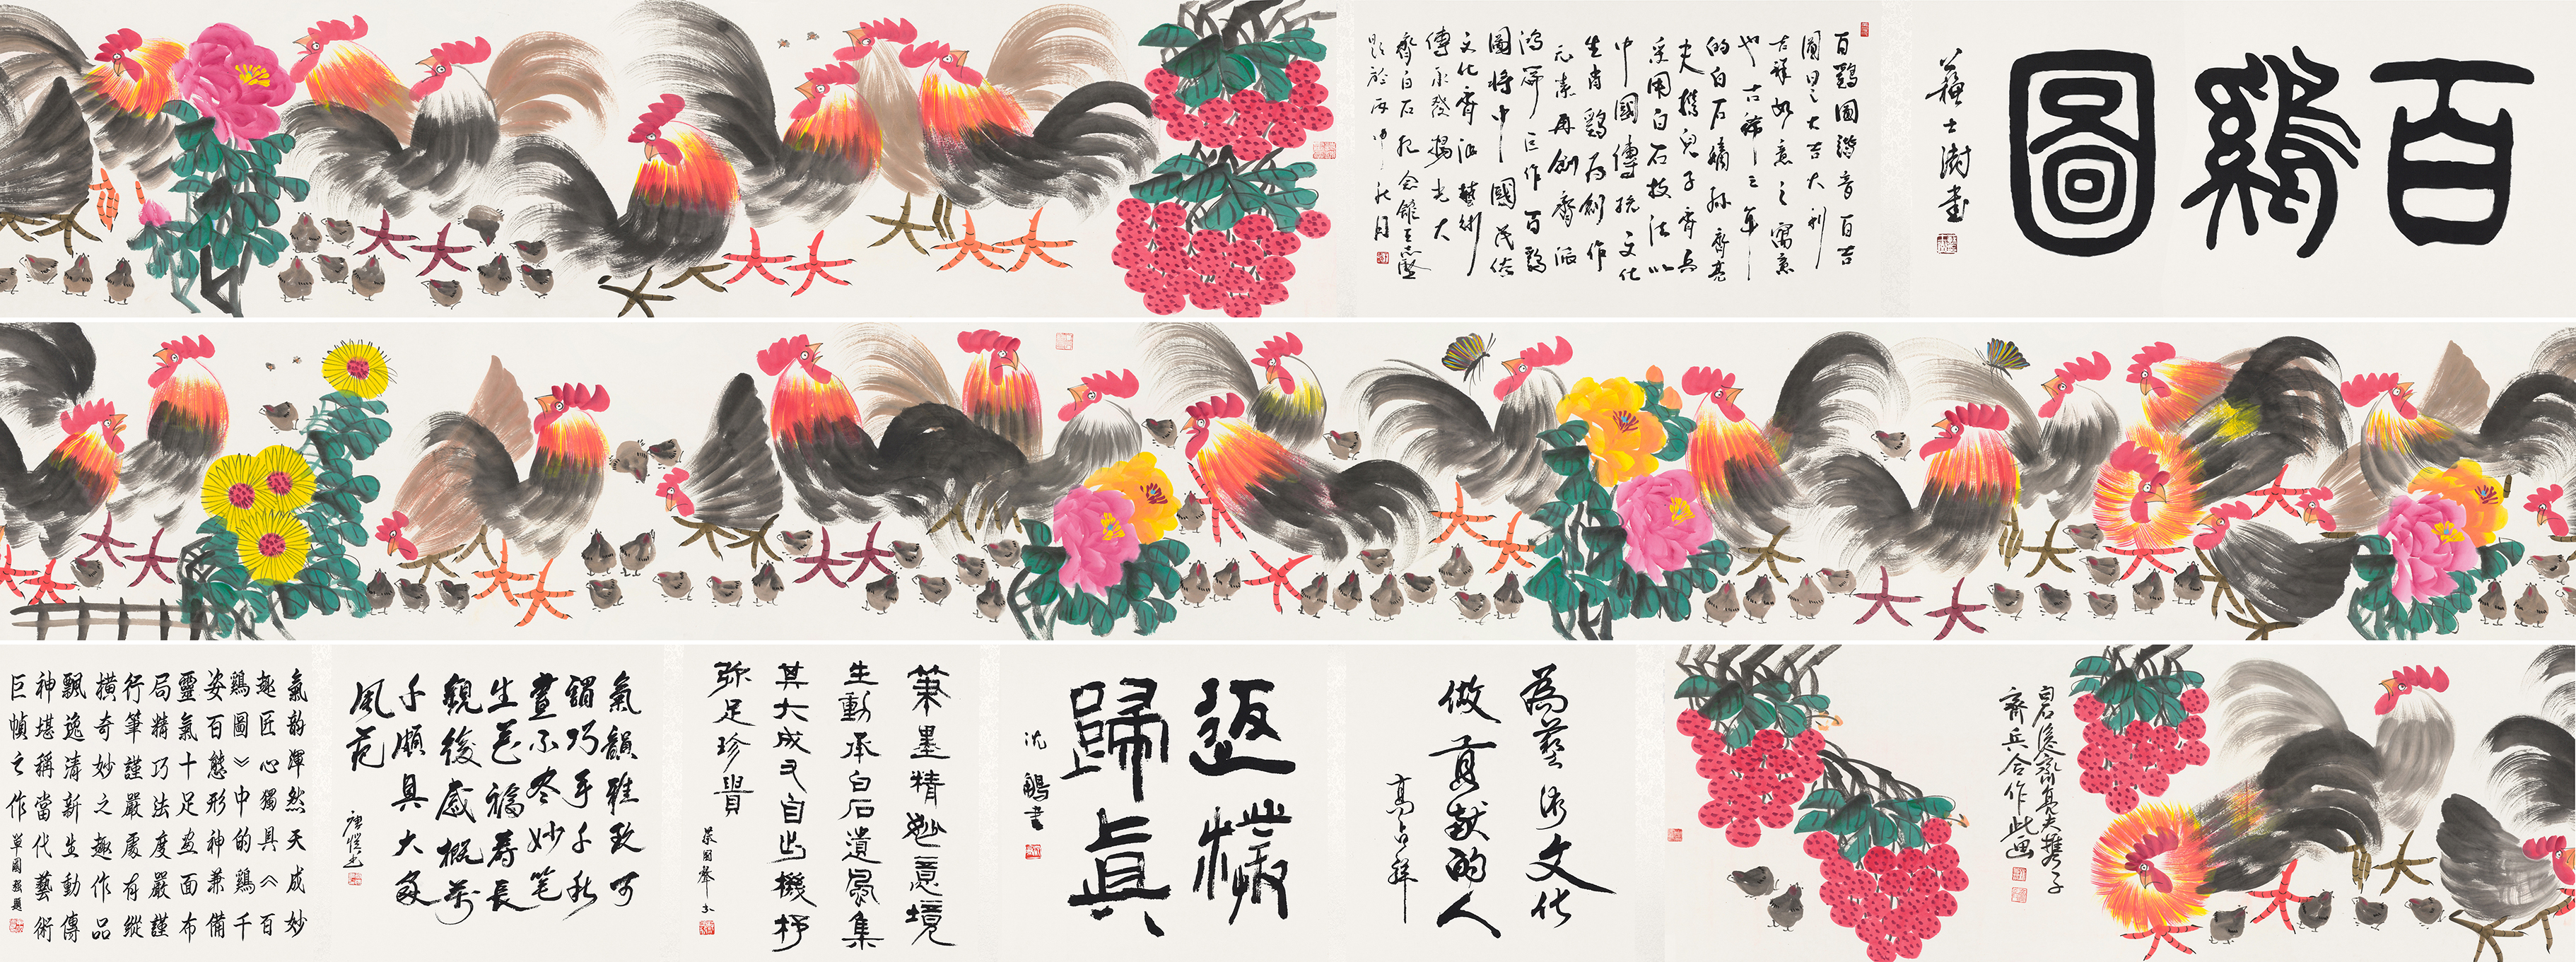 百鷄圖
蘇士澍書
百鷄圖谐音百吉
圖曰之大吉大利
吉祥如意之寓意
也古稀之年
的白石嫡孙齊亮
夫携兒子齊兵
采用白石技法以
中國傳统文化
生肖鷄为創作
元素再創齊派
鸿篇巨作百鷄
圖将中國民俗
文化齊派藝術
傳承發揚光大
齊白石纪念館王志堅
题於丙申秋月
白石後裔齊亮夫携子
齊兵合作此画
為藝术文化
做貢献的人
高占祥
返樸
歸真
沈鵬書
筆墨精妙意境
生動承白石遺風集
其大成又自出機杼
弥足珍貴
氣韻雅致可
謂巧手千秋
畫不冬妙笔
生花福寿長
觀後感概万
千頗具大家
風范
氣韵渾然天成妙
趣匠心獨具《百
鷄圖》中的鷄千
姿百態形神兼備
靈氣十足画面布
局精巧法度嚴謹
行筆謹嚴處有縱
横奇妙之趣作品
飄逸清新生動傳
神堪稱當代藝術
巨幀之作
單國强題